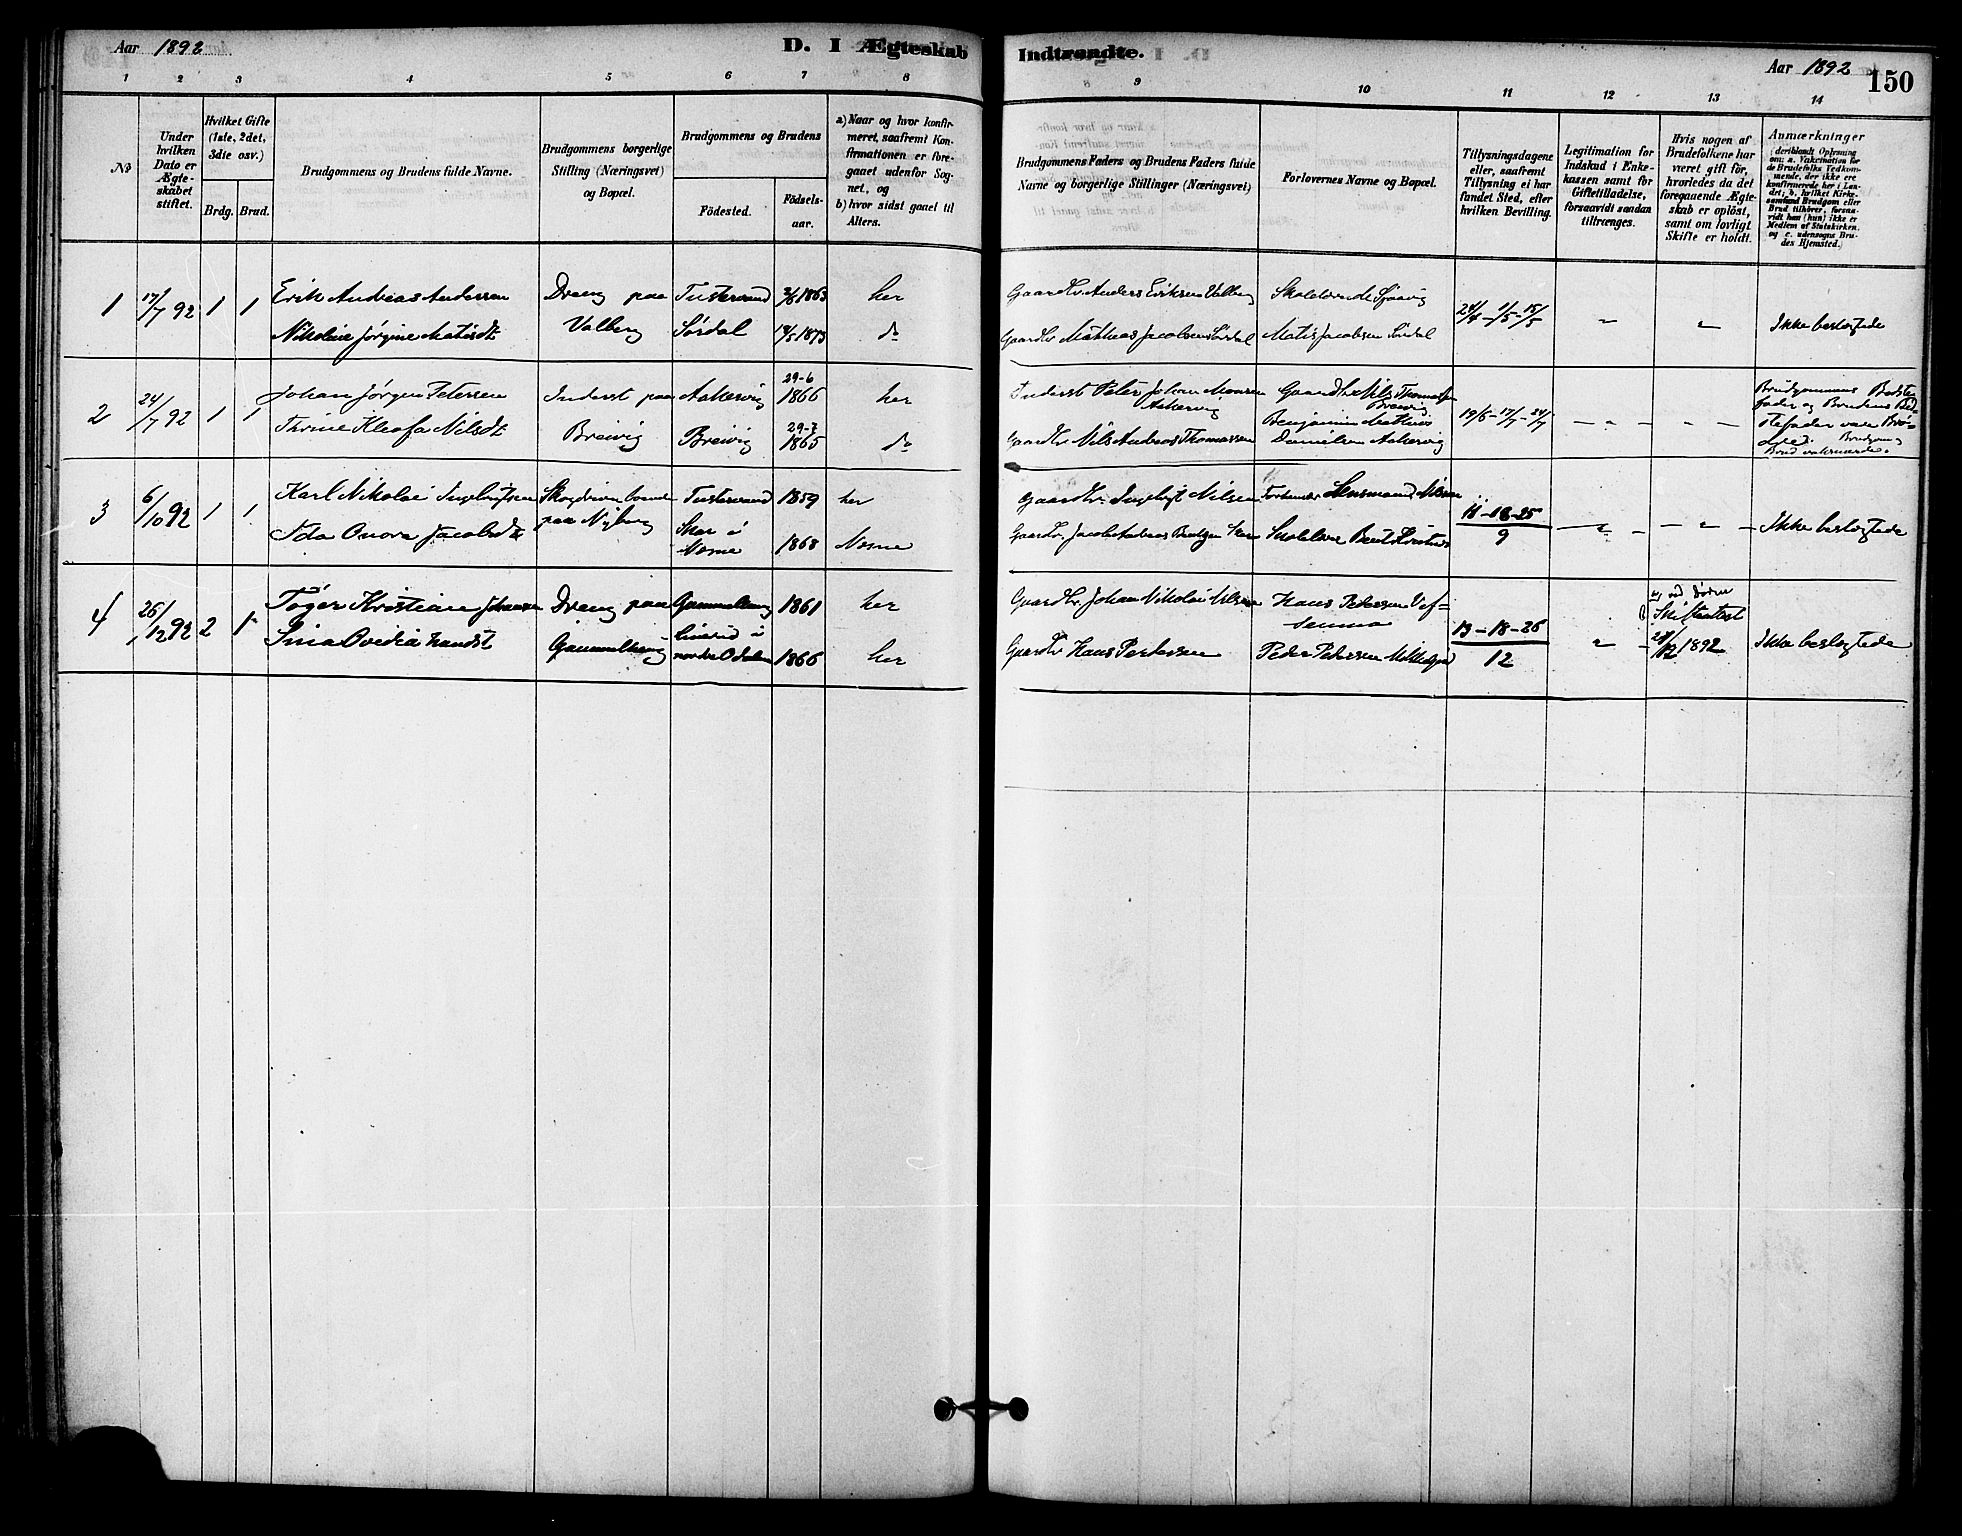 Aar 1892
D. I Ægteskab Indtrædte.
Aar 1892
150
1 2 3 4 5 6 7 8 9 10 11 12 13 14
No
Under hvilken Dato er Ægteskabet stiftet.
Hvilket Gifte (1ste, 2det, 3die osv.)
Brdg. Brud.
Brudgommens og Brudens fulde Navne.
Brudgommens borgerlige Stilling (Næringsvei) og Bopæl.
Brudgommens og Brudens
Födested.
Födsels-aar.
a) Naar og hvor konfirmeret, saafremt Konfirmationen er foregaaet udenfor Sognet, og
b) hvor sidst gaaet til Alters.
Brudgommens Faders og Brudens Faders fulde Navne og borgerlige Stillinger (Næringsvei)
Forlovernes Navne og Bopæl.
Tillysningsdagene eller, saafremt Tillysning ei har fundet Sted, efter hvilken Bevilling.
Legitimation for Indskud i Enkekassen samt for Giftetilladelse, forsaavidt saadan tiltrænges.
Hvis nogen af Brudefolkene har været gift för, hvorledes da det foregaaende Ægteskab er oplöst, samt om lovligt Skifte er holdt.
Anmærkninger
(deriblandt Oplysning om: a. Vakcination for de Brudefolks Vedkommende, der ikke ere konfirmerede her i Landet; b. hvilket Kirkesamfund Brudgom eller Brud tilhörer, forsaavidt han (hun) ikke er Medlem af Statskirken, og c. udensogns Brudes Hjemsted.)
1 17/7 92 1 1 Erik Andreas Andersen Dreng paa Tustervand 2/6 1863 her Gaardbr Anders Eriksen Valberg 24/4 - 1/5 - 15/5 " "
Nikoline Jørgine Matisdt Valberg Sørdal 13/5 1873 do Gaardbr Mathias Jacobsen Sørdal Matis Jacobsen Sørdal Ikke beslægtede
2 24/7 92 1 1 Johan Jørgen Petersen Inderst paa Aakervig 29-6 1866 her Inderst Peter Johan Monsen Aakervig Gaardbr Nils Thomassen Breivig 19/6 - 17/7 - 24/7 - - - - Brudgommens Bedstefader og Brudens Bedstefader vare Brødre. Brudgom og Brud vaksinerede.
Trine Kleofa Nilsdt Breivig Breivig 29-7 1865 do Gaardbr Nils Andreas Thomassen Benjamin Mathias Danielsen Aakervig
3 6/10 92 1 1 Karl Nikolai Ingebrigtsen paa Nyberg Tustervand 1859 her Gaardbr. Ingebrigt Nilsen 11-18-25
Ida Onora Jacobsdt Skar i Nesne 1868 Nesne Gaardbr. Jacob Andreas Bentzen Skar Skolelærer 9 - " - - " - Ikke beslægtede
4 26/12 92 2 1 Tøger Kristian Johansen Dreng paa Gammelhaug 1861 her Gaardbr Johan Nikolai Nilsen Hans Pedersen Vefsenmo 13-18-26 a) ved Døden b) Skifteattest
Sina Ovidia Hansdt Gammelhaug nordre Odalen 1866 her Gaardbr Hans Pedersen Peder Pedersen 12 " 24/12 1892 Ikke beslægtede